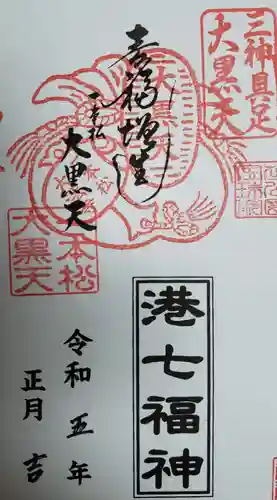 三神具足
大黒天
寿福増進
一本松
大黒天
一本松
大黒天
港七福神
令和五年
正月吉